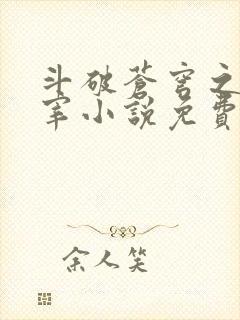 斗破蒼穹之
宰小說免費
余人笑